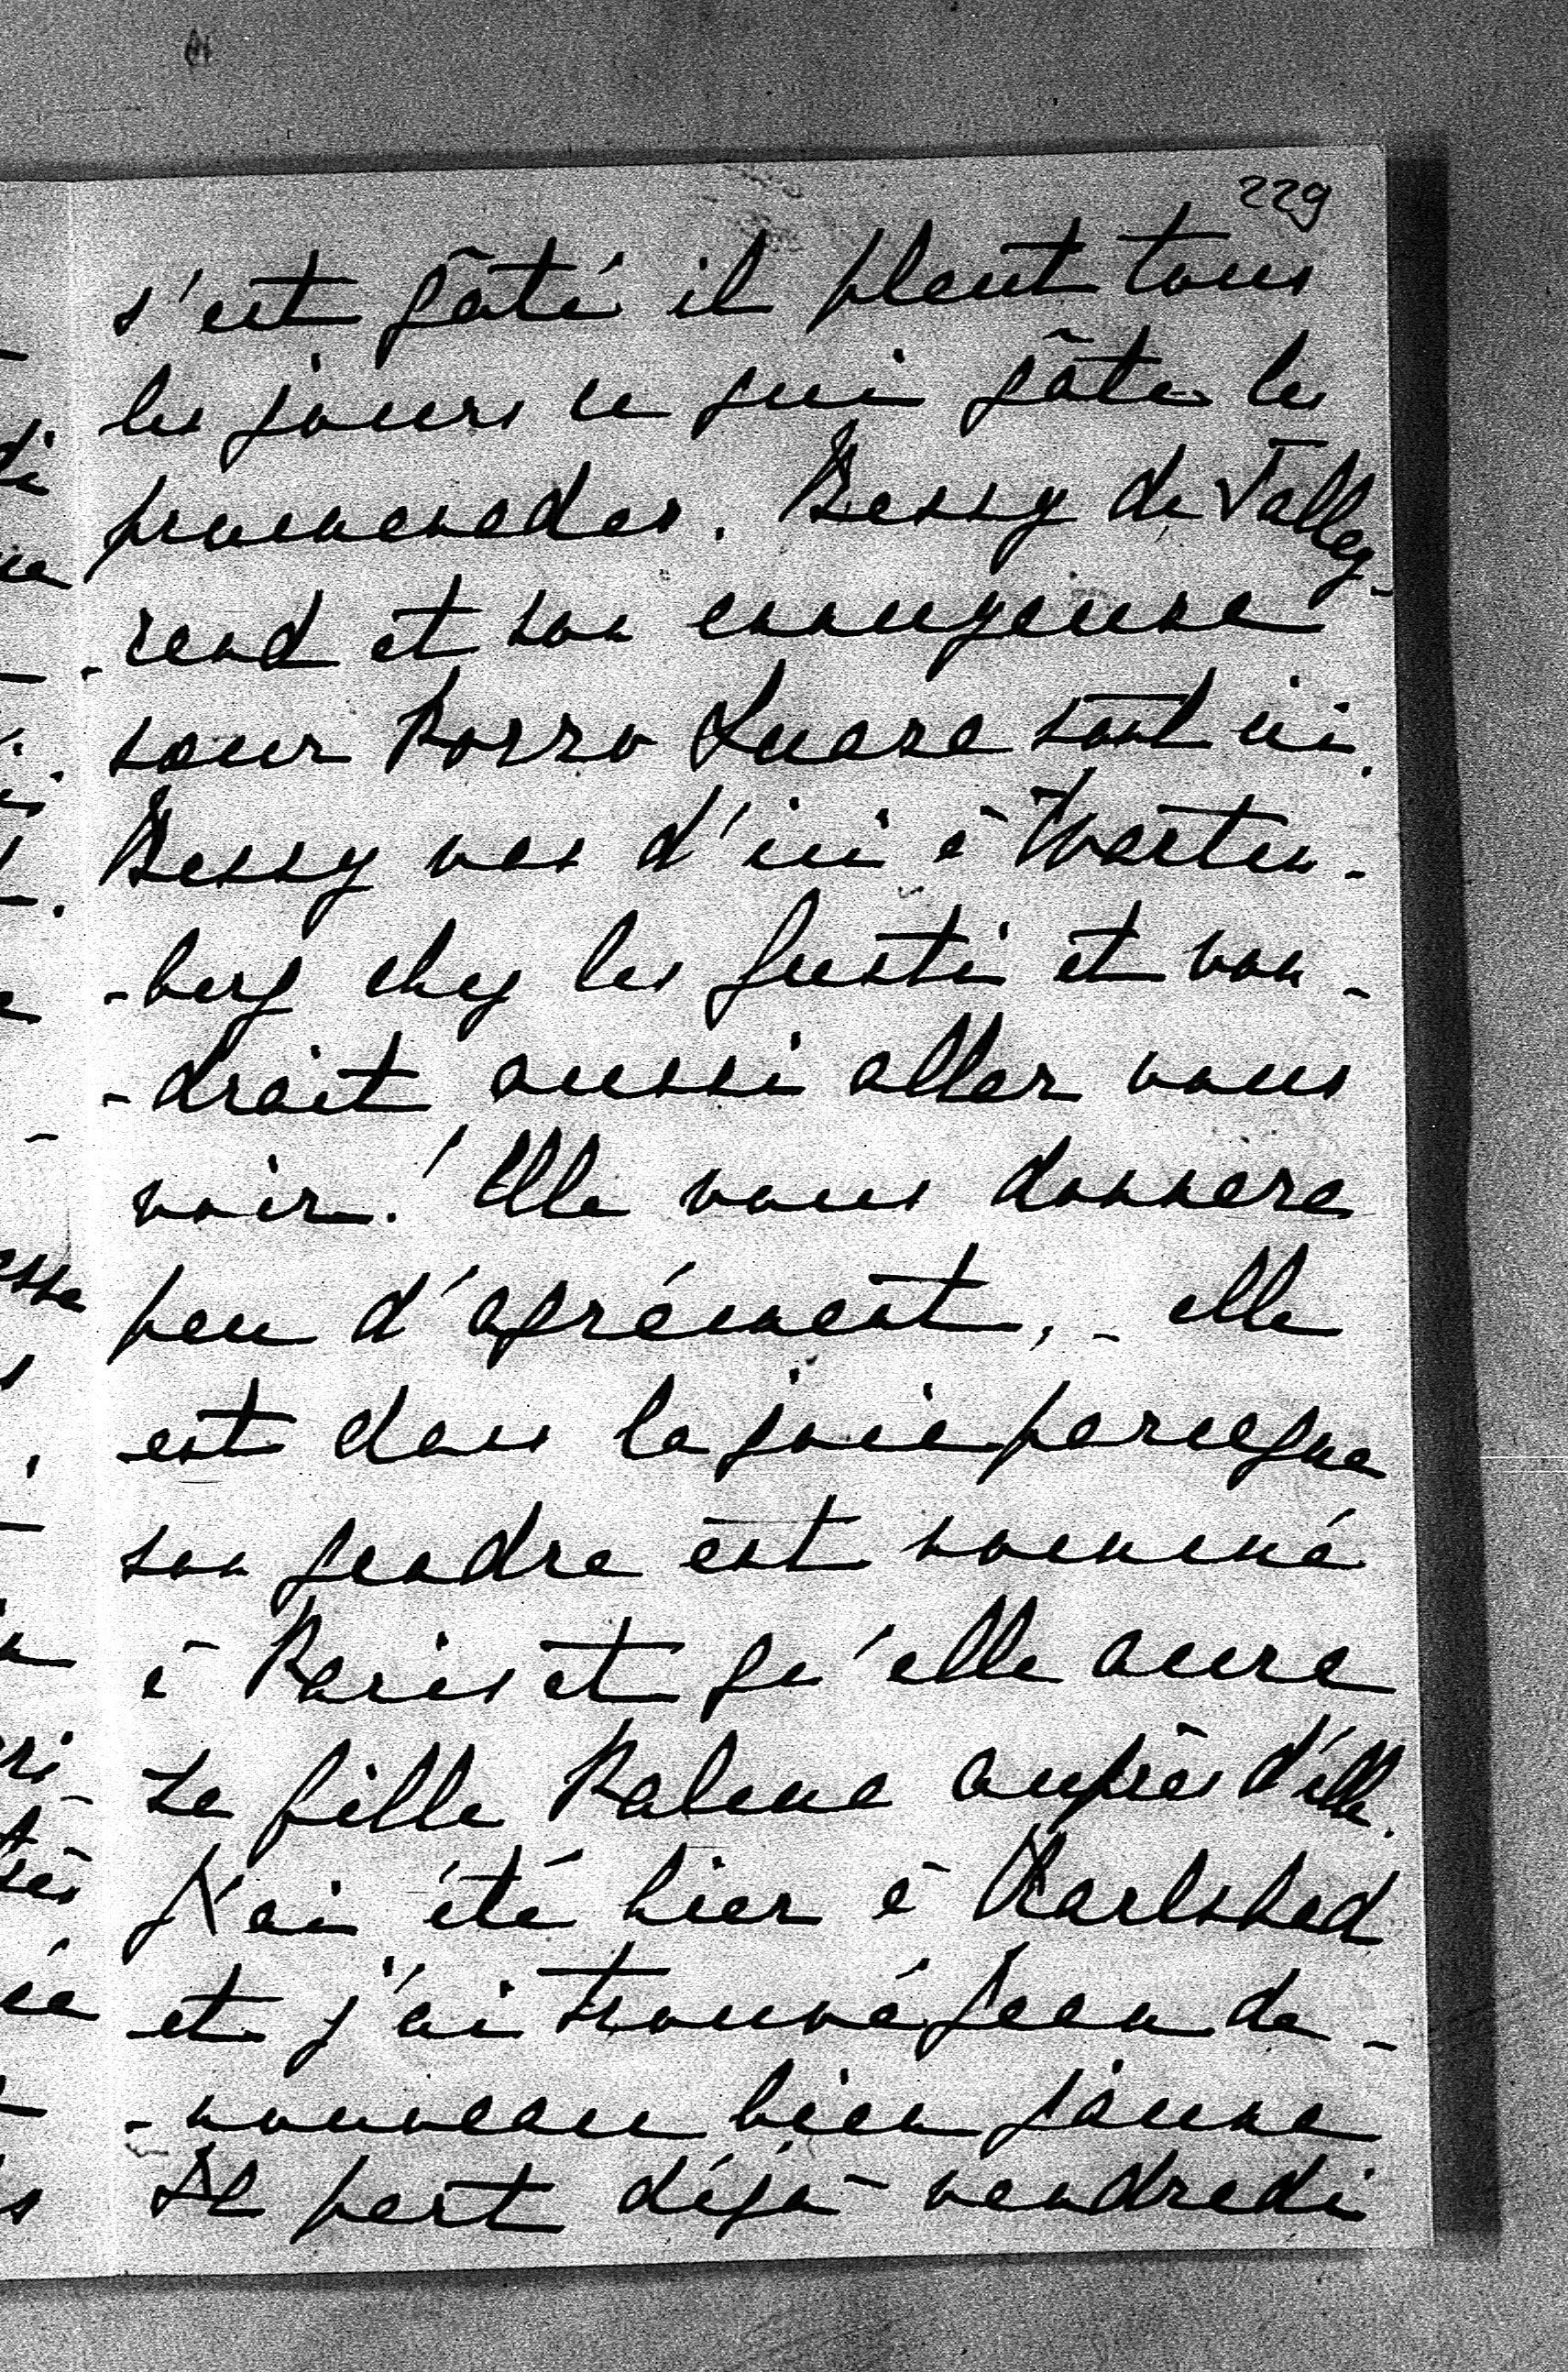 229
s'est gâté il pleut tous
les jours ce qui gâte les
promenades. Bessy de Talley-
-rand et son ennuyeuse
sœur Pozzo sont ici.
Bessy va d'ici à Warten-
-berg chez les et vou-
-drait aussi aller vous
voir! Elle vous donnera
peu d'agrément, - elle
est dans la joie parceque
son gendre est nommé
à Paris et qu'elle aura
sa fille auprès d'elle.
J'ai été hier à Karlsbad
et j'ai trouvé Jean de-
-nouveau bien jaune
Il part déjà vendredi